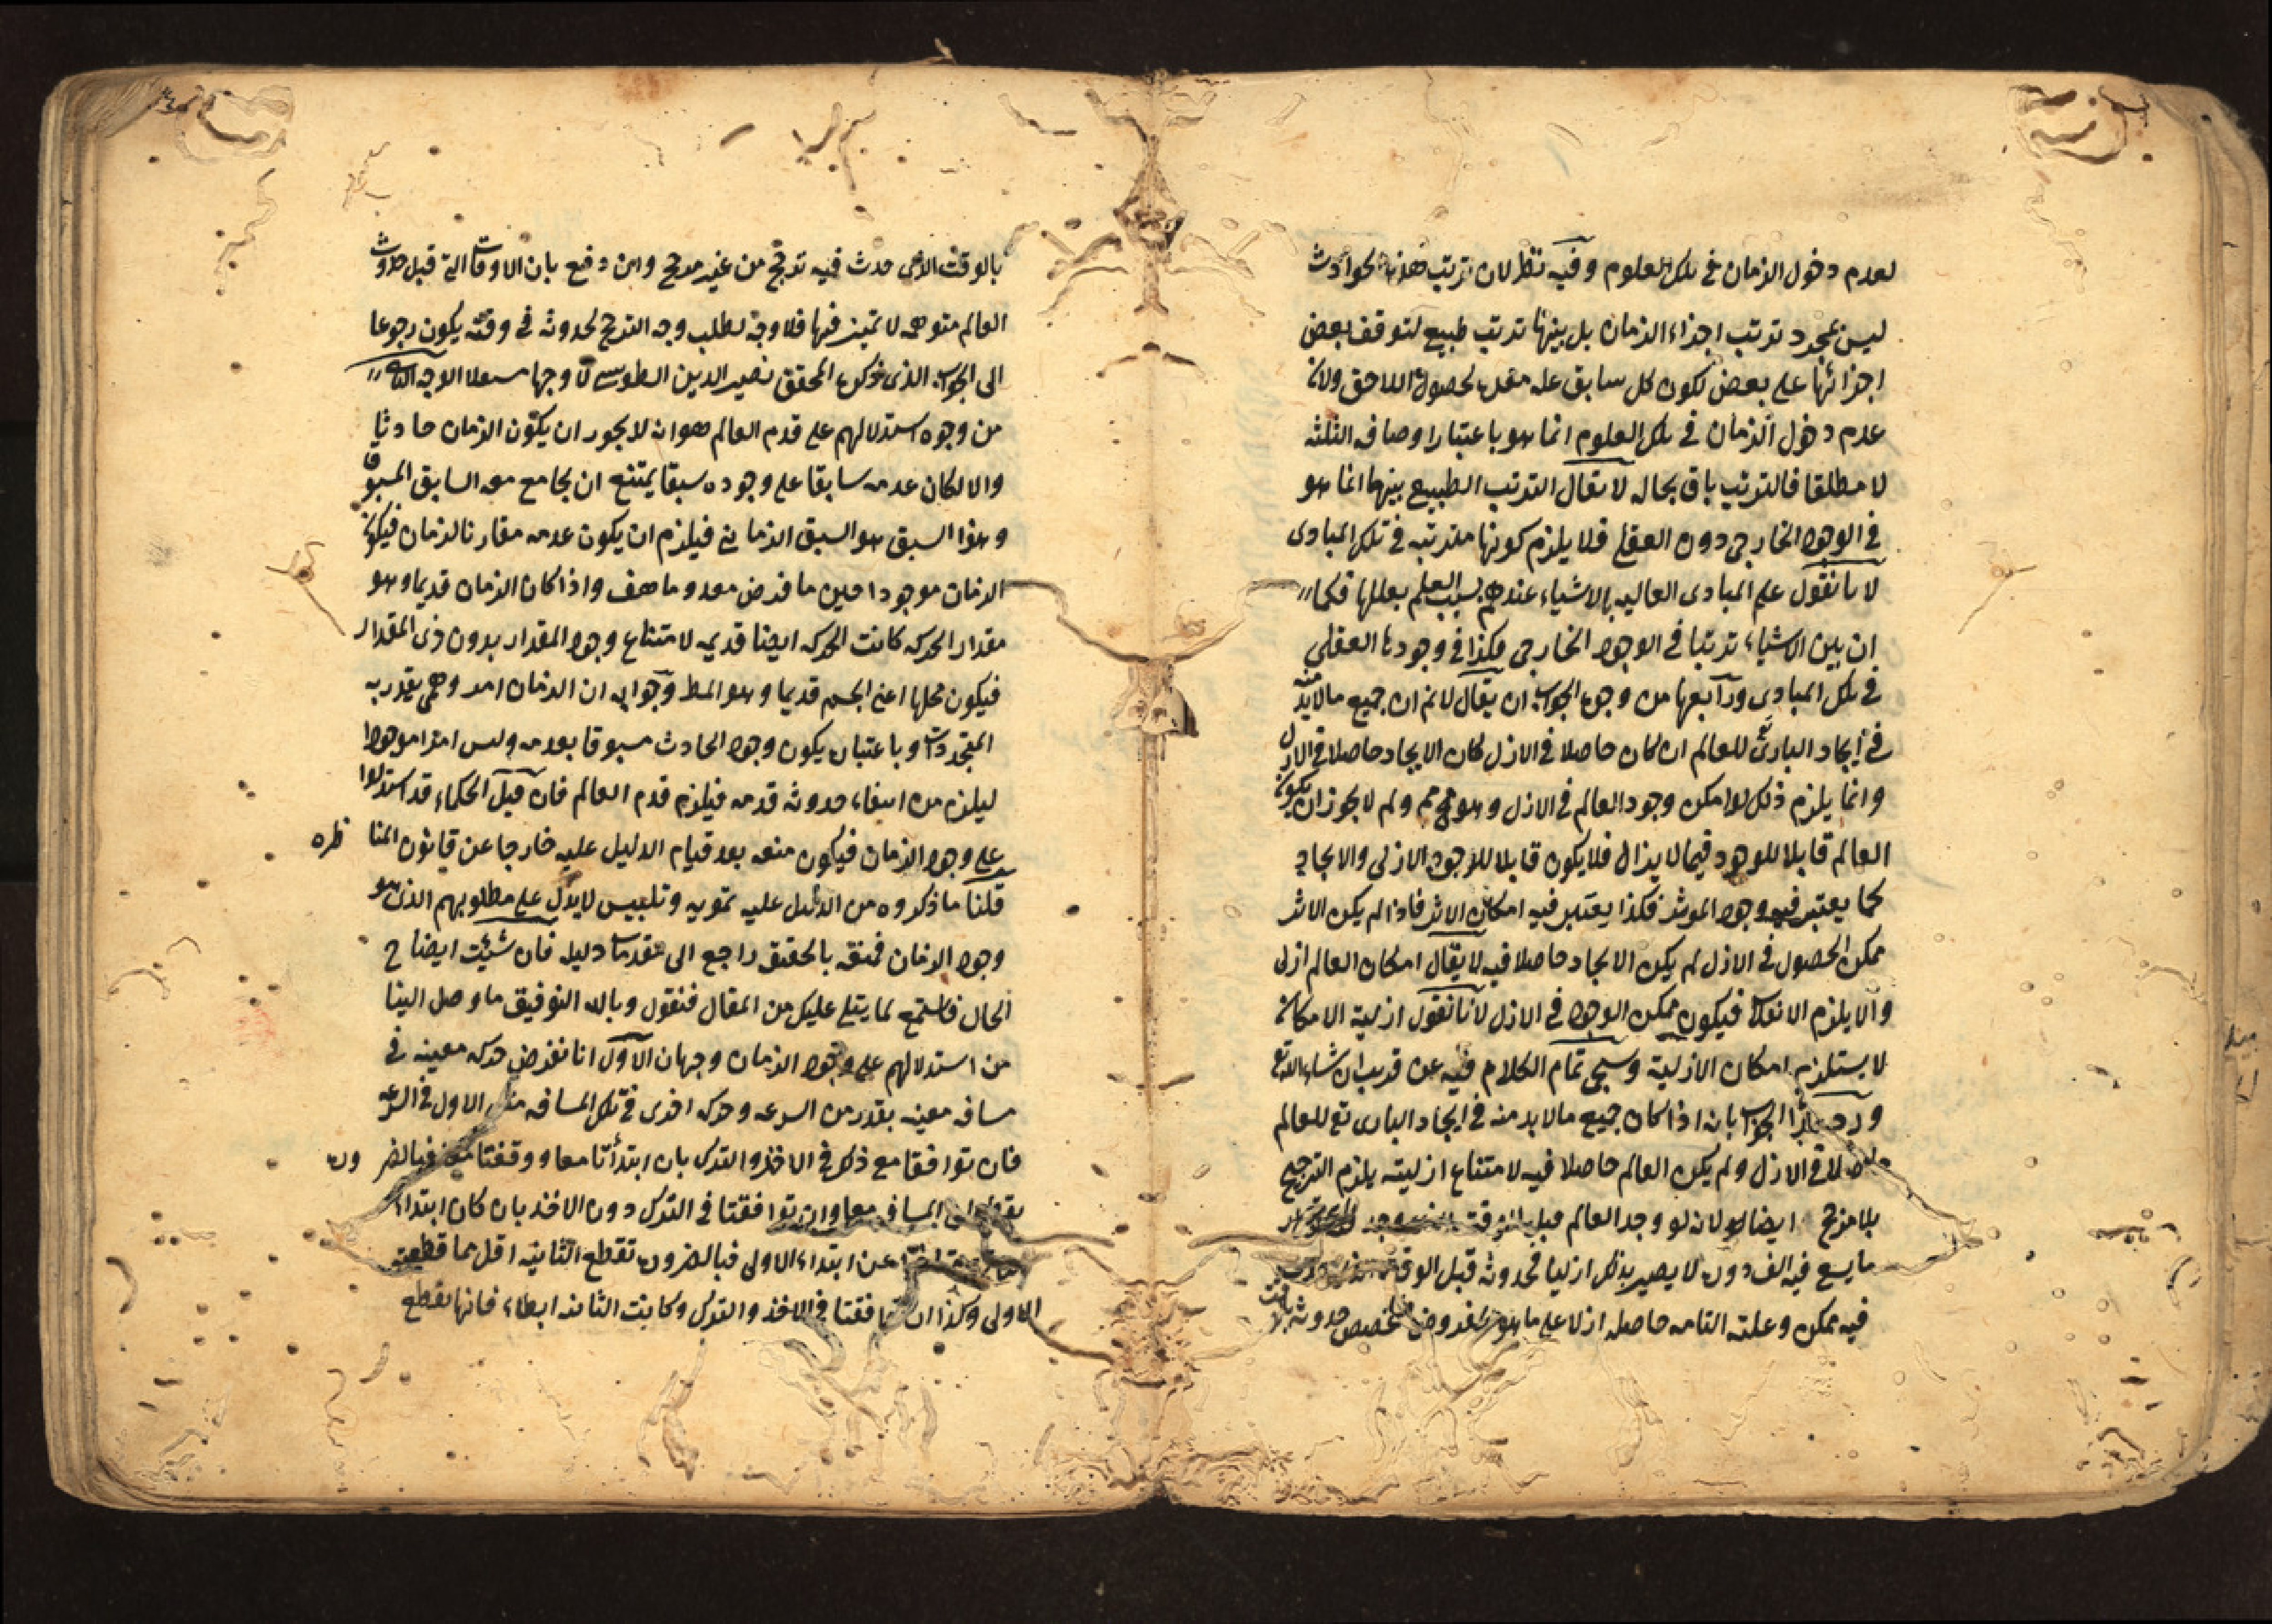 لعدم دخول الزمان في تلك العلوم وفيه نظر لان ترتب هذه الحوادث
ليس بمجرد ترتب اجزاء الزمان بل بينها ترتب طبيعي لتوقف بعض
اجزائها على بعض لكون كل سابق علة معدة لحصول اللاحق ولان
عدم دخول الزمان في تلك العلوم انما هو باعتبار اوصافه الثلثه
لا مطلقا فالترتيب باق بحاله لا يقال الترتب الطبيعي بينهما انما هو
في الوجود الخارجي دون العقلي فلا يلزم كونها مترتبه في تلك المبادى
لانا نقول علم المبادى العاليه بالاشياء عندهم بسبب العلم بعللها فكما
ان بين الاشياء ترتبا في الوجود الخارجي فكذا في وجودها العقلي
في تلك المبادى ورابعها من وجوه الجواب ان يقال لا نم ان جميع مالابد منه
في ايجاد البارى تع للعالم ان كان حاصلا في الازل كان الايجاد حاصلا في الازل
وانما يلزم ذلك لو امكن وجود العالم في الازل وهو مم ولم لا يجوز ان يكون
العالم قابلا للوجود فيما لا يزال فلا يكون قابلا للوجود الازلي والايجاد
كما يعتبر فيه وجود الموثر فكذا يعتبر فيه امكان الاثر فاذا لم يكن الاثر
ممكن الحصول في الازل لم يكن الايجاد حاصلا فيه لا يقال امكان العالم ازلى
والا يلزم الانقلاب فيكون ممكن الوجود في الازل لانا نقول ازلية الامكان
لا يستلزم امكان الازلية وسيجى تمام الكلام فيه عن قريب ان شاء الله تع
ورد هذا الجواب بانه اذا كان جميع مالابد منه في ايجاد البارى تع للعالم
حاصلا في الازل ولم يكن العالم حاصلا فيه لامتناع ازليته يلزم الترجيح
بلا مرجح ايضا لانه لو وجد العالم قبل الوقت الذى وجد
ما يسع فيه الف دورة لا يصير بذلك ازليا فحدوثه قبل الوقت الذى حدث
فيه ممكن وعلته التامه حاصله ازلا على ما هو المفروض فتخصيص حدوثه
بالوقت الذى حدث فيه ترجح من غير مرجح واين دفع بان الاوقات التي قبل حدوث
العالم متوهمه لا تميز فيها فلا وجه لطلب وجه الترجح لحدوثه في وقته يكون رجوعا
الى الجواب الذى ذكره المحقق نصير الدين الطوسي لا وجها مستقلا الوجه الثانى
من وجوه استدلالهم على قدم العالم هو انه لا يجوز ان يكون الزمان حادثا
والا لكان عدمه سابقا على وجوده سبقا يمتنع ان يجامع معه السابق المسبوق
وهذا السبق هو السبق الزماني فيلزم ان يكون عدمه مقارنا لزمان فيكون
الزمان موجودا حين ما فرض معدوما هف واذا كان الزمان قديما وهو
مقدار الحركه كانت الحركه ايضا قديمه لامتناع وجود المقدار بدون ذى المقدار
فيكون محلها اعنى الجسم قديما وهو المط وجوابه ان الزمان امر وهمى يقدر به
المتجددات وباعتباره يكون وجود الحادث مسبوقا بعدمه وليس امرا موجودا
ليلزم من انتفاء حدوثه قدمه فيلزم قدم العالم فان قيل الحكماء قد استدلوا
على وجود الزمان فيكون منعه بعد قيام الدليل عليه خارجا عن قانون المناظره
قلنا ما ذكروه من الدليل عليه تمويه وتلبيس لا يدل على مطلوبهم الذى هو
وجود الزمان فمنعه بالحقيقة راجع الى مقدمات دليله فان شئت ايضاح
الحال فاستمع لما يتلى عليك من المقال فنقول وبالله التوفيق ما وصل الينا
من استدلالهم على وجود الزمان وجهان الاول انا نفرض حركه معينه في
مسافه معينه بقدر من السرعه وحركه اخرى في تلك المسافه مثل الاول في السرعه
فان توافقا مع ذلك في الاخذ والترك بان ابتدأتا معا ووقفتا معا فبالضرورة
المسافه معا وان توافقتا في الترك دون الاخذ بان كان ابتداء
عن ابتداء الاولى فبالضرورة تقطع الثانيه اقل مما قطعته
الاولى وكذا ان توافقتا في الاخذ والترك وكانت الثانيه ابطاء فانها تقطع